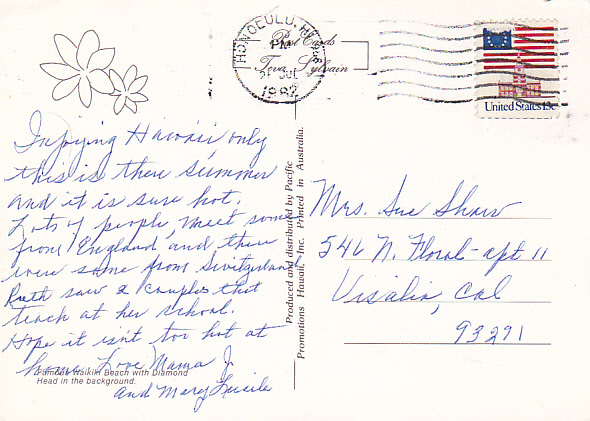 Injoying Hawaii only
this is there summer
and it is sure hot.
Lots of people, meet some
from England and there
were some from Switzerland
Ruth saw 2 couples that
teach at her school.
Hope it isn't too hot at
home. Love Mama J.
and Mary Lucile
Famous Waikiki Beach with Diamond
Head in the background.
Produced and distributed by Pacific
Promotions Hawaii, Inc. Printed in Australia.
HONOLULU, HI
PM
JUL
1982
Post Cards
Teva Sylvain
United States 13c
Mrs. Sue Shaw
546 N. Floral - apt 11
Visalia, Cal
93291